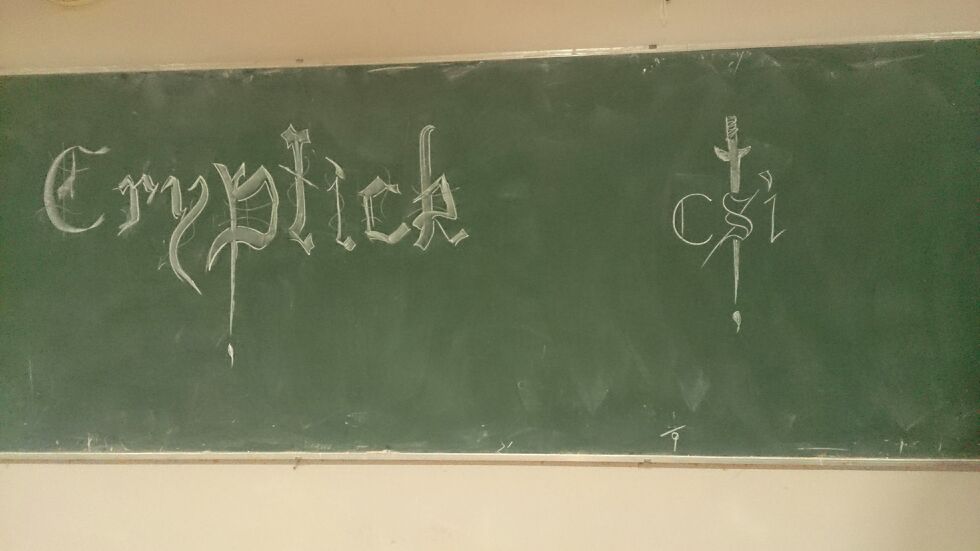 Cryptick
CSi